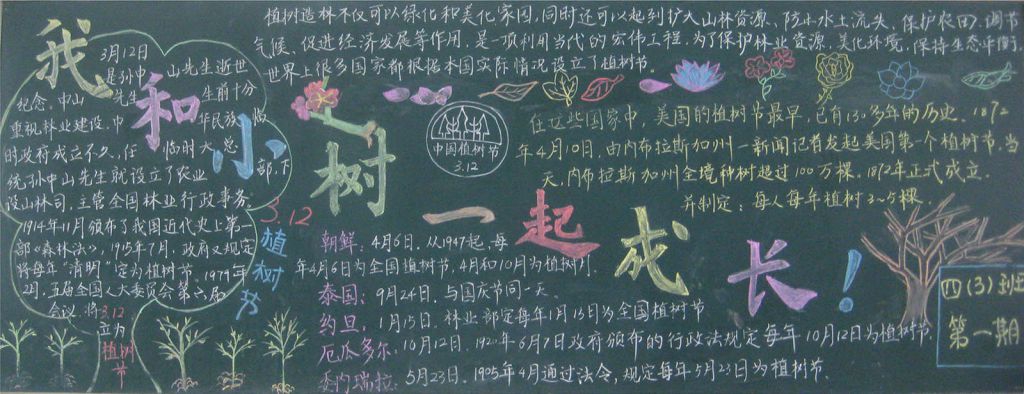 植树造林不仅可以绿化和美化家园,同时还可以起到扩大山林资源、防止水土流失、保护农田、调节
气候、促进经济发展等作用,是一项利用当代的宏伟工程,为了保护林业资源,美化环境,保持生态平衡,
世界上很多国家都根据本国实际情况设立了植树节。
我和小树一起成长!
3月12日
是孙中山先生逝世
纪念。中山先生生前十分
重视林业建设。中华民族临
的政府成立不久、任临时大总
统孙中山先生就设立了农业部、下
设山林司,主管全国林业行政事务。
1914年11月颁布了我国近代史上第一
部《森林法》,1915年7月,政府又规定
将每年“清明”定为植树节。1979年
2月,五届全国人大委员会第六届
会议,将3.12
立为
植树
节
3.12
植树节
中国植树节
3.12
在这些国家中,美国的植树节最早,已有130多年的历史。1872
年4月10日,由内布拉斯加州一新闻记者发起美国第一个植树节,当
天,内布拉斯加州全境种树超过100万棵。1812年正式成立。
并制定:每人每年植树3~5棵。
朝鲜:4月6日。从1947起,每
年4月6日为全国植树节,4月和10月为植树月.
泰国:9月24日。与国庆节同一天。
约旦,1月15日。林业部定每年1月15日为全国植树节
厄瓜多尔:10月12日。192年6月7日政府颁布的行政法规定每年10月12日为植树节.
委内瑞拉:5月23日。1905年4月通过法令,规定每年5月23日为植树节.
四(3)班
第一期